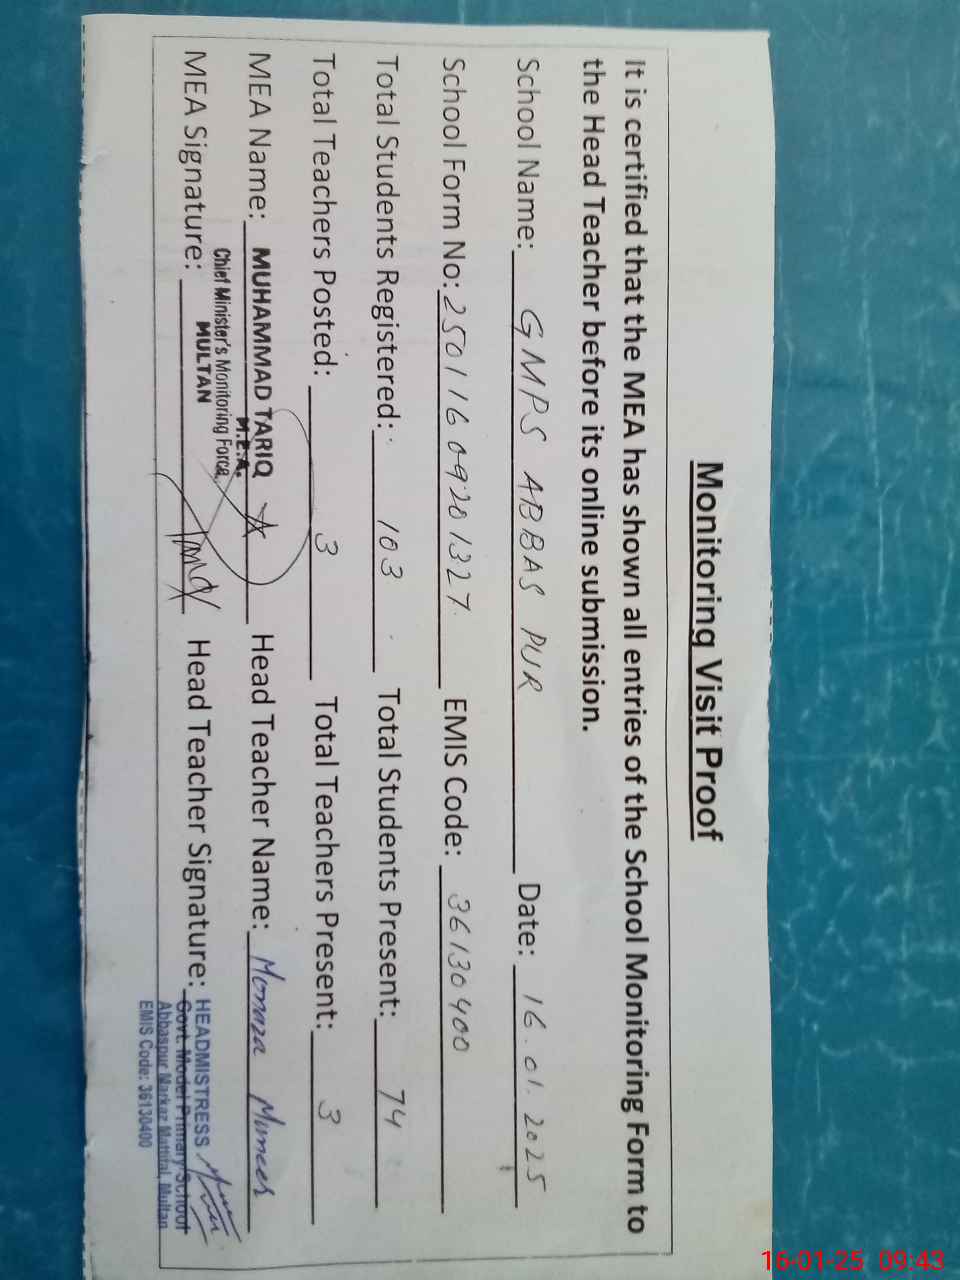 Monitoring Visit Proof
It is certified that the MEA has shown all entries of the School Monitoring Form to
the Head Teacher before its online submission.
School Name: GMPS ABBAS PUR Date: 16.01.2025
School Form No: 25011609201327 EMIS Code: 36130400
Total Students Registered: 103 Total Students Present: 74
Total Teachers Posted: 3 Total Teachers Present: 3
MEA Name: MUHAMMAD TARIQ Head Teacher Name: Monaza Muneer
M.E.A.
Chief Minister's Monitoring Force
MULTAN
MEA Signature: Head Teacher Signature:
HEADMISTRESS
Govt. Model Primary School
Abbaspur Markaz Mattital, Multan
EMIS Code: 36130400
16-01-25 09:43